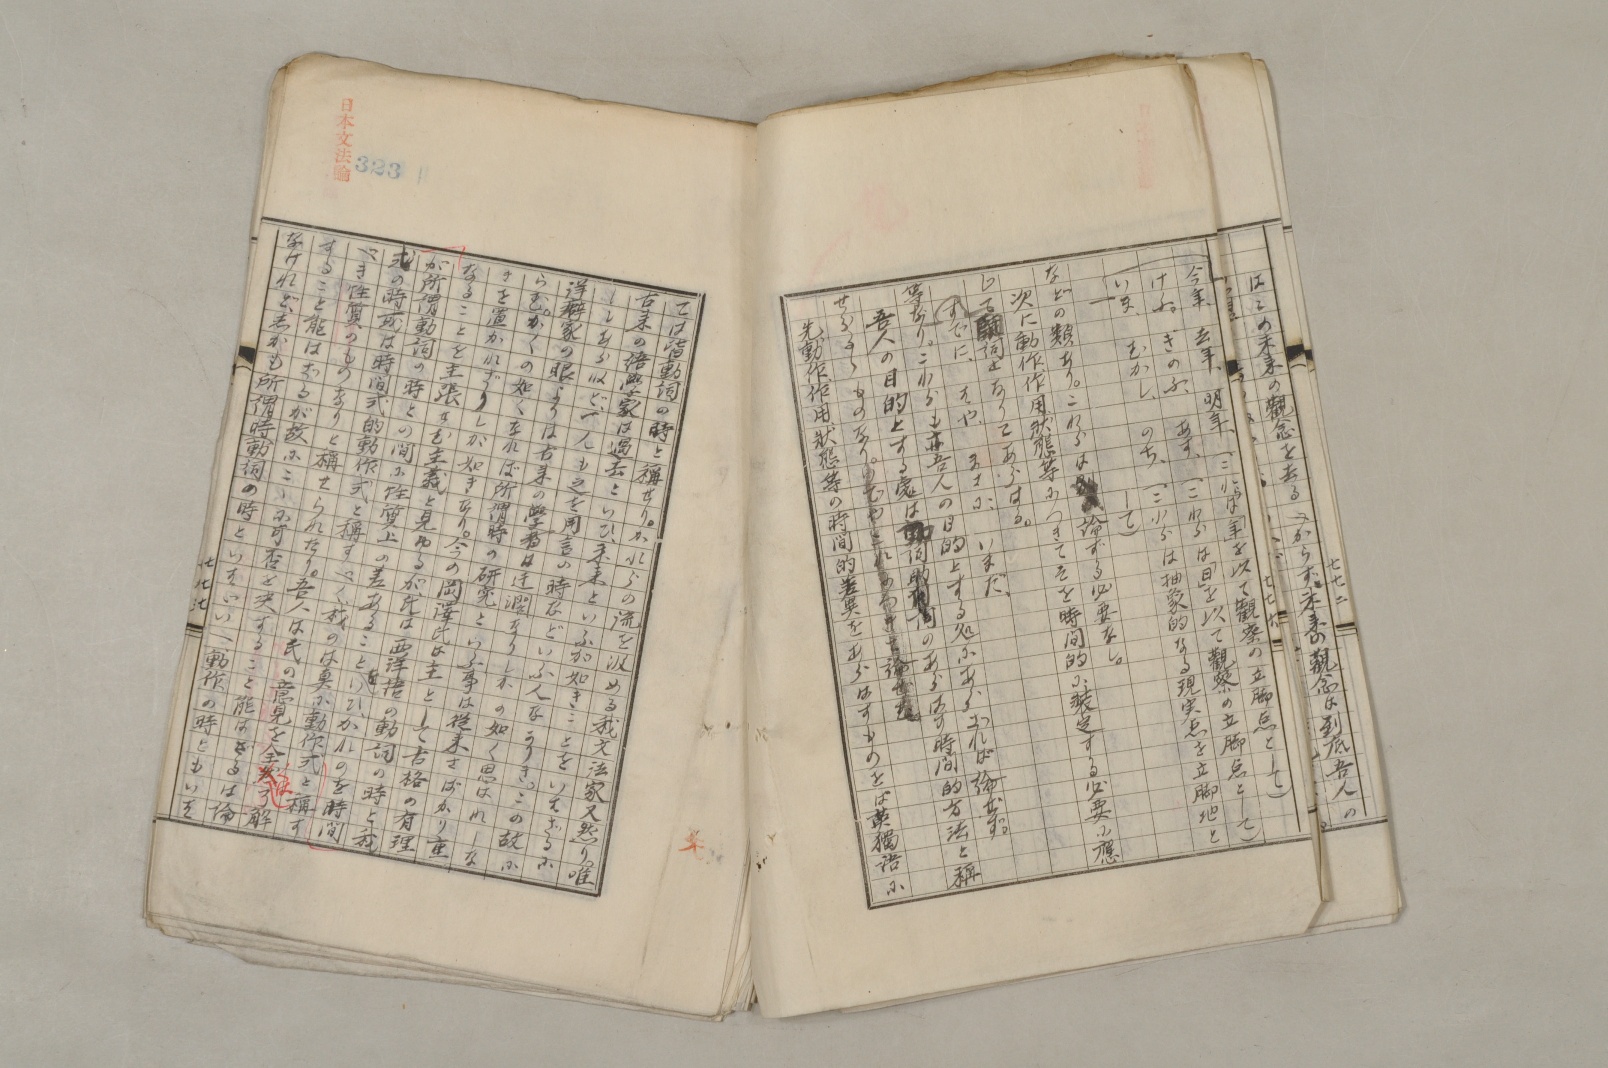 はこの未来の觀念を去るべからず。未来の觀念は到底吾人の
七七二
七七六
今年、去年、明年、(これらは「年」を以て觀察の立脚点として)
けふ、きのふ、あす、(これらは「日」を以て觀察の立脚点として)
いま、むかし、のち、(これらは抽象的なる現実点を立脚地と
して)
などの類あり。これらは論ずる必要なし。
次に動作作用狀態等につきてそを時間的に裝定する必要に應
じて副詞をありてあらはる。
すでに、はや、まさに、いまだ、
等なり。これらも亦吾人の目的とする処にあらざれば論ぜず。
吾人の目的とする處は動詞のあらはす時間的方法と稱
せらるゝものなり。
先動作作用狀態等の時間的差異をあらはすものをば英獨語に
日本文法論
323
ては皆動詞の時と稱せり。かれらの流を汲める我文法家又然り。唯
古来の語學家は過去といひ、未来といふが如きことをいはざるに
しもあらねど、一人も之を用言の時などいふ人なかりき。この故に
洋癖家の眼よりは古来の學者は迂濶なりしかの如く思はれしな
らむ。かくの如くなれば所謂時の研究といふ事は從来さばかり重
きを置かれざりしが如きなり。今の岡澤氏は主として古格の有理
なることを主張せむ主義と見ゆるが、氏は西洋語の動詞の時と我
が所謂動詞の時との間に性質上の差あることをいひ、かれのを時間
式の時或は時間式的動作式と稱すべく我のは眞に動作式と稱す
べき性質のものなりと稱せられたり。吾人は氏の意見を全然了解
すること能はざるが故にこゝに可否を決すること能はざるは倫
なけれど、しかも所謂時動詞の時といはゞいへ、動作の時ともいは
七七七